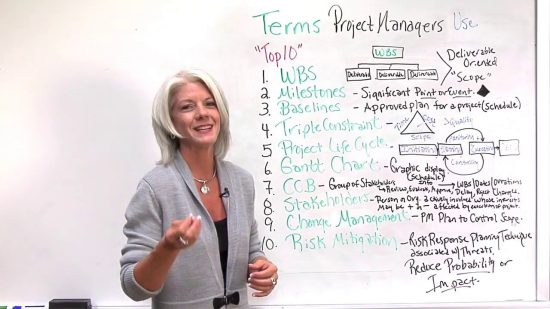 Terms Project Managers Use
"Top 10"
WBS
Deliverable Deliverable Deliverable
Deliverable
Oriented
"Scope"
1. WBS
2. Milestones - Significant Point or Event.
3. Baselines - Approved plan for a project (schedule)
4. Triple Constraint
Time
Scope
5. Project Life Cycle
Initiation
6. Gantt Chart - Graphic display
(schedule)
7. CCB - Group of Stakeholders
8. Stakeholders - Person or Org. actively involved whose interests
may be + or - affected by execution of project.
9. Change Management - PM Plan to Control Scope.
10. Risk Mitigation - Risk Response Planning Technique
associated w/ Threats.
Reduce Probability or
Impact.